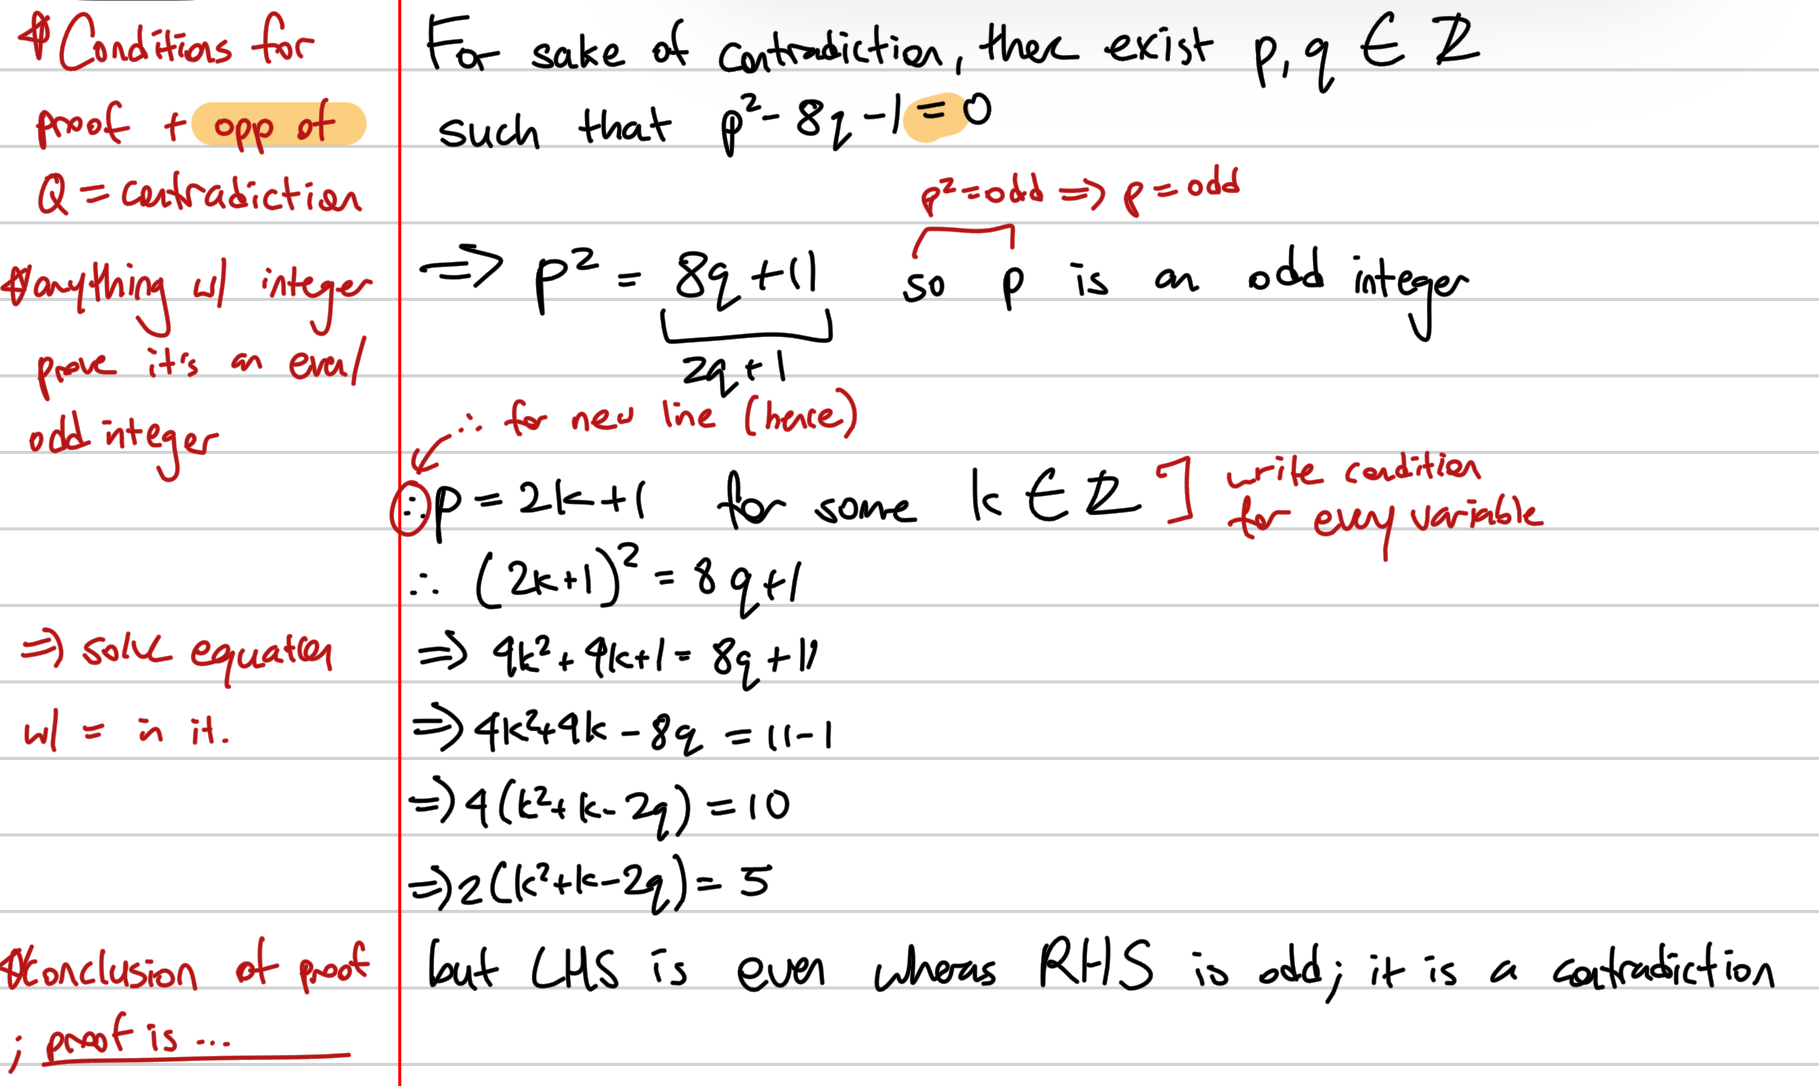 * Conditions for
proof + opp of
Q = contradiction
* anything w/ integer
prove it's an even/
odd integer
=> solve equation
w/ = in it.
* Conclusion of proof
; proof is ...
For sake of contradiction, ther exist p, q ∈ ℤ
such that p² - 8q - 1 = 0
p² = odd => p = odd
=> p² = 8q + 11 so p is an odd integer
2q + 1
∴ for new line (hence)
∴ p = 2k + 1 for some k ∈ ℤ ] write condition
for every variable
∴ (2k+1)² = 8q + 1
=> 4k² + 4k + 1 = 8q + 11
=> 4k² + 4k - 8q = 11 - 1
=> 4(k² + k - 2q) = 10
=> 2(k² + k - 2q) = 5
but LHS is even wheras RHS is odd; it is a contradiction